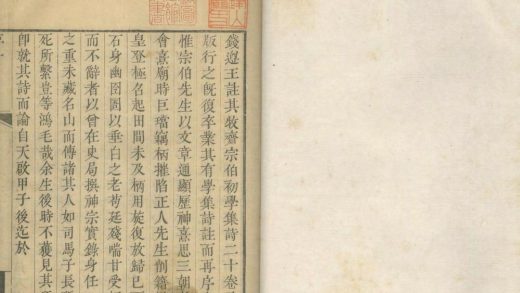 錢遵王註其牧齋宗伯初學集詩二十卷
版行之既復卒業其有學集詩註而再序
惟宗伯先生以文章通顯歷神熹思三朝
會熹廟時巨璫竊柄摧陷正人先生削籍
皇登極名起田間未及柄用旋復放歸已
石身幽囹圄以垂白之老苟延殘喘甘受
而不辭者以曾在史局撰神宗實錄身任
之重未藏名山而傳諸其人如司馬子長
死所繫豈等鴻毛哉余生後時不獲見其
即就其詩而論自天啟甲子後迄於